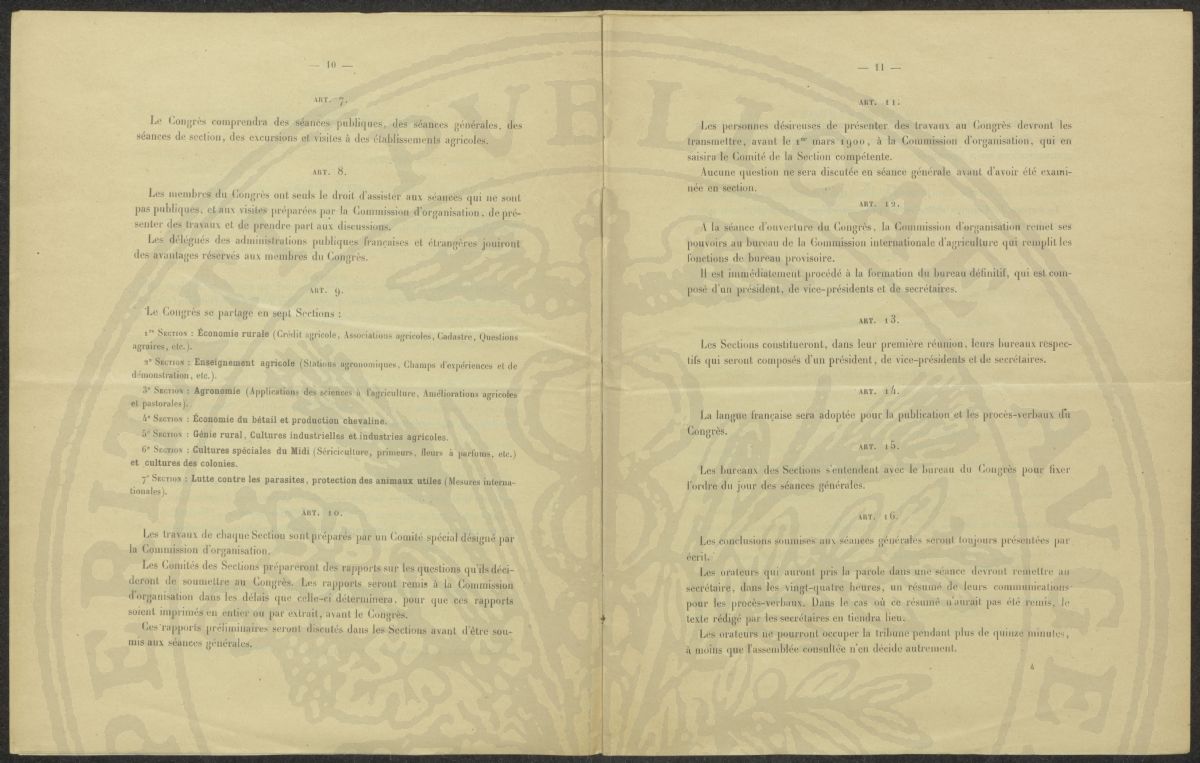 — 10 —
ART. 7.
Le Congrès comprendra des séances publiques, des séances générales, des
séances de section, des excursions et visites à des établissements agricoles.
ART. 8.
Les membres du Congrès ont seuls le droit d'assister aux séances qui ne sont
pas publiques, et aux visites préparées par la Commission d'organisation, de pré-
senter des travaux et de prendre part aux discussions.
Les délégués des administrations publiques françaises et étrangères jouiront
des avantages réservés aux membres du Congrès.
ART. 9.
Le Congrès se partage en sept Sections :
1re SECTION : Économie rurale (Crédit agricole, Associations agricoles, Cadastre, Questions
agraires, etc.).
2e SECTION : Enseignement agricole (Stations agronomiques, Champs d'expériences et de
démonstration, etc.).
3e SECTION : Agronomie (Applications des sciences à l'agriculture, Améliorations agricoles
et pastorales).
4e SECTION : Économie du bétail et production chevaline.
5e SECTION : Génie rural, Cultures industrielles et industries agricoles.
6e SECTION : Cultures spéciales du Midi (Sériciculture, primeurs, fleurs à parfums, etc.)
et cultures des colonies.
7e SECTION : Lutte contre les parasites, protection des animaux utiles (Mesures interna-
tionales).
ART. 10.
Les travaux de chaque Section sont préparés par un Comité spécial désigné par
la Commission d'organisation.
Les Comités des Sections prépareront des rapports sur les questions qu'ils déci-
deront de soumettre au Congrès. Les rapports seront remis à la Commission
d'organisation dans les délais que celle-ci déterminera, pour que ces rapports
soient imprimés en entier ou par extrait, avant le Congrès.
Ces rapports préliminaires seront discutés dans les Sections avant d'être sou-
mis aux séances générales.
— 11 —
ART. 11.
Les personnes désireuses de présenter des travaux au Congrès devront les
transmettre, avant le 1er mars 1900, à la Commission d'organisation, qui en
saisira le Comité de la Section compétente.
Aucune question ne sera discutée en séance générale avant d'avoir été exami-
née en section.
ART. 12.
A la séance d'ouverture du Congrès, la Commission d'organisation remet ses
pouvoirs au bureau de la Commission internationale d'agriculture qui remplit les
fonctions de bureau provisoire.
Il est immédiatement procédé à la formation du bureau définitif, qui est com-
posé d'un président, de vice-présidents et de secrétaires.
ART. 13.
Les Sections constitueront, dans leur première réunion, leurs bureaux respec-
tifs qui seront composés d'un président, de vice-présidents et de secrétaires.
ART. 14.
La langue française sera adoptée pour la publication et les procès-verbaux du
Congrès.
ART. 15.
Les bureaux des Sections s'entendent avec le bureau du Congrès pour fixer
l'ordre du jour des séances générales.
ART. 16.
Les conclusions soumises aux séances générales seront toujours présentées par
écrit.
Les orateurs qui auront pris la parole dans une séance devront remettre au
secrétaire, dans les vingt-quatre heures, un résumé de leurs communications
pour les procès-verbaux. Dans le cas où ce résumé n'aurait pas été remis, le
texte rédigé par les secrétaires en tiendra lieu.
Les orateurs ne pourront occuper la tribune pendant plus de quinze minutes,
à moins que l'assemblée consultée n'en décide autrement.
4